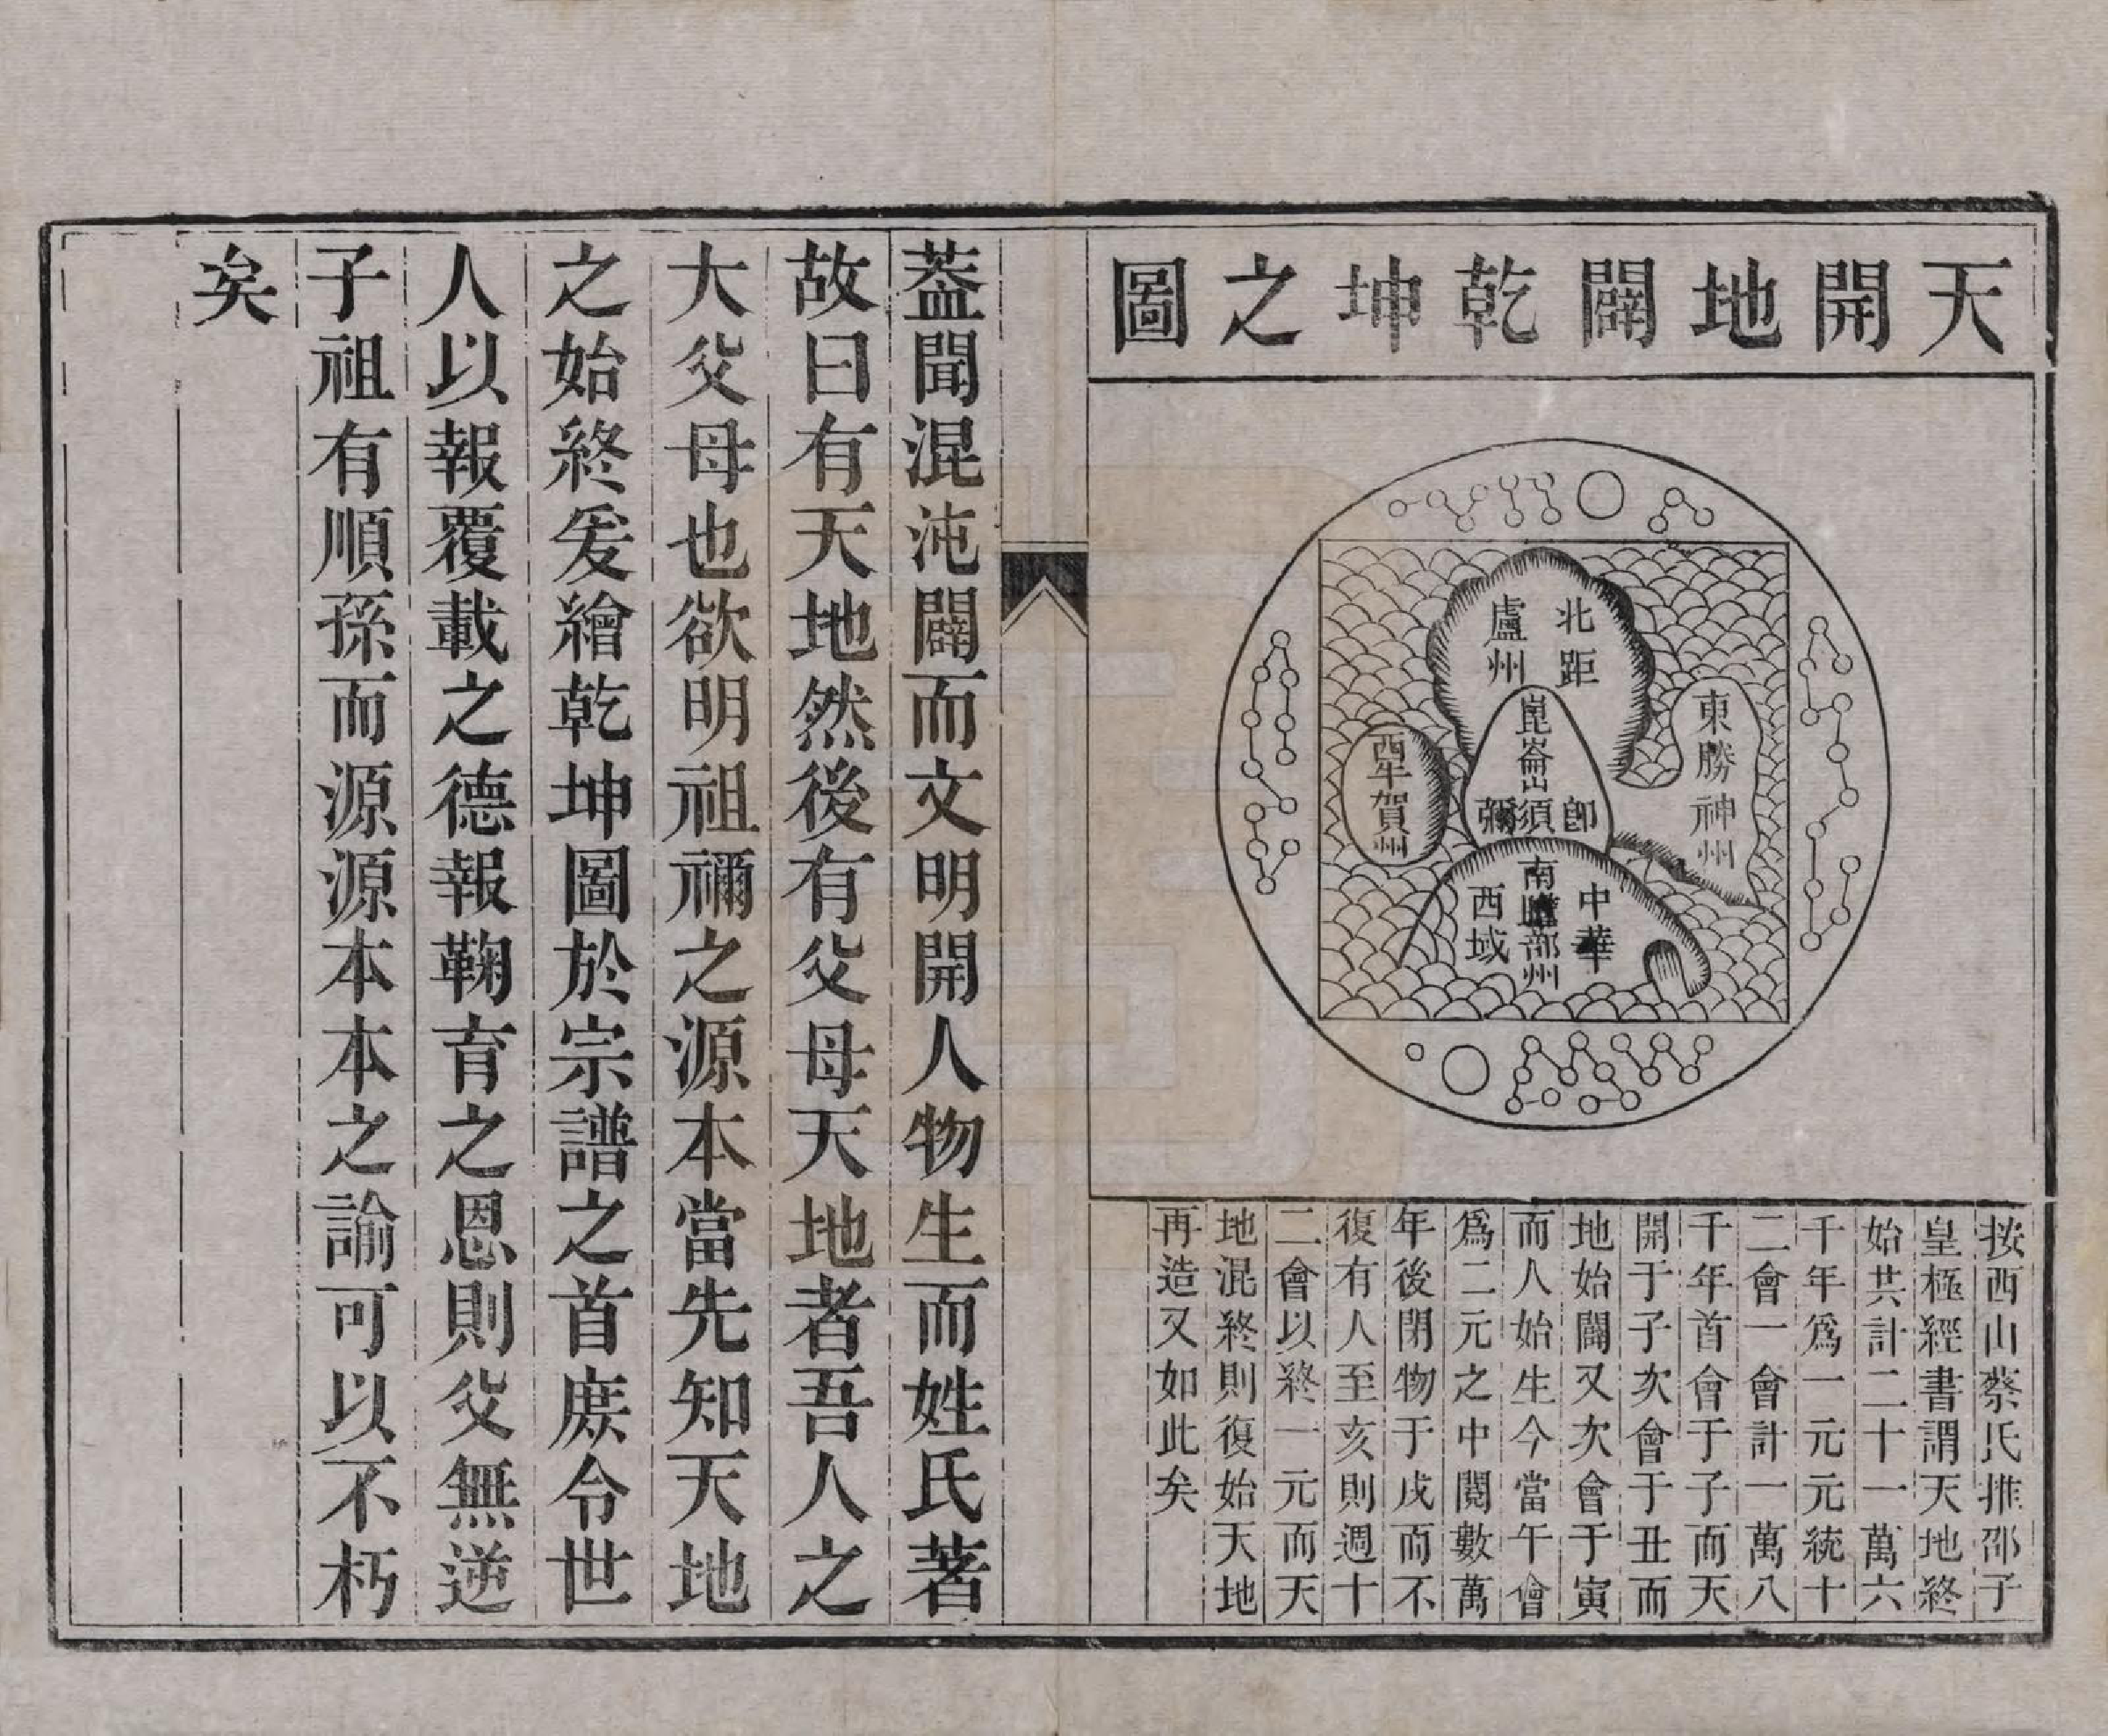 天開地闢乾坤之圖
北距
盧州
東勝神州
崑崙山
卽須彌
西牛賀州
中華
南贍部州
西域
按西山蔡氏推邵子
皇極經書謂天地終
始共計二十一萬六
千年爲一元元統十
二會一會計一萬八
千年首會于子而天
開于子次會于丑而
地始闢又次會于寅
而人始生今當午會
爲二元之中閱數萬
年後閉物于戌而不
復有人至亥則週十
二會以終一元而天
地混終則復始天地
再造又如此矣
葢聞混沌闢而文明開人物生而姓氏著
故曰有天地然後有父母天地者吾人之
大父母也欲明祖禰之源本當先知天地
之始終爰繪乾坤圖於宗譜之首庻令世
人以報覆載之德報鞠育之恩則父無逆
子祖有順孫而源源本本之諭可以不朽
矣